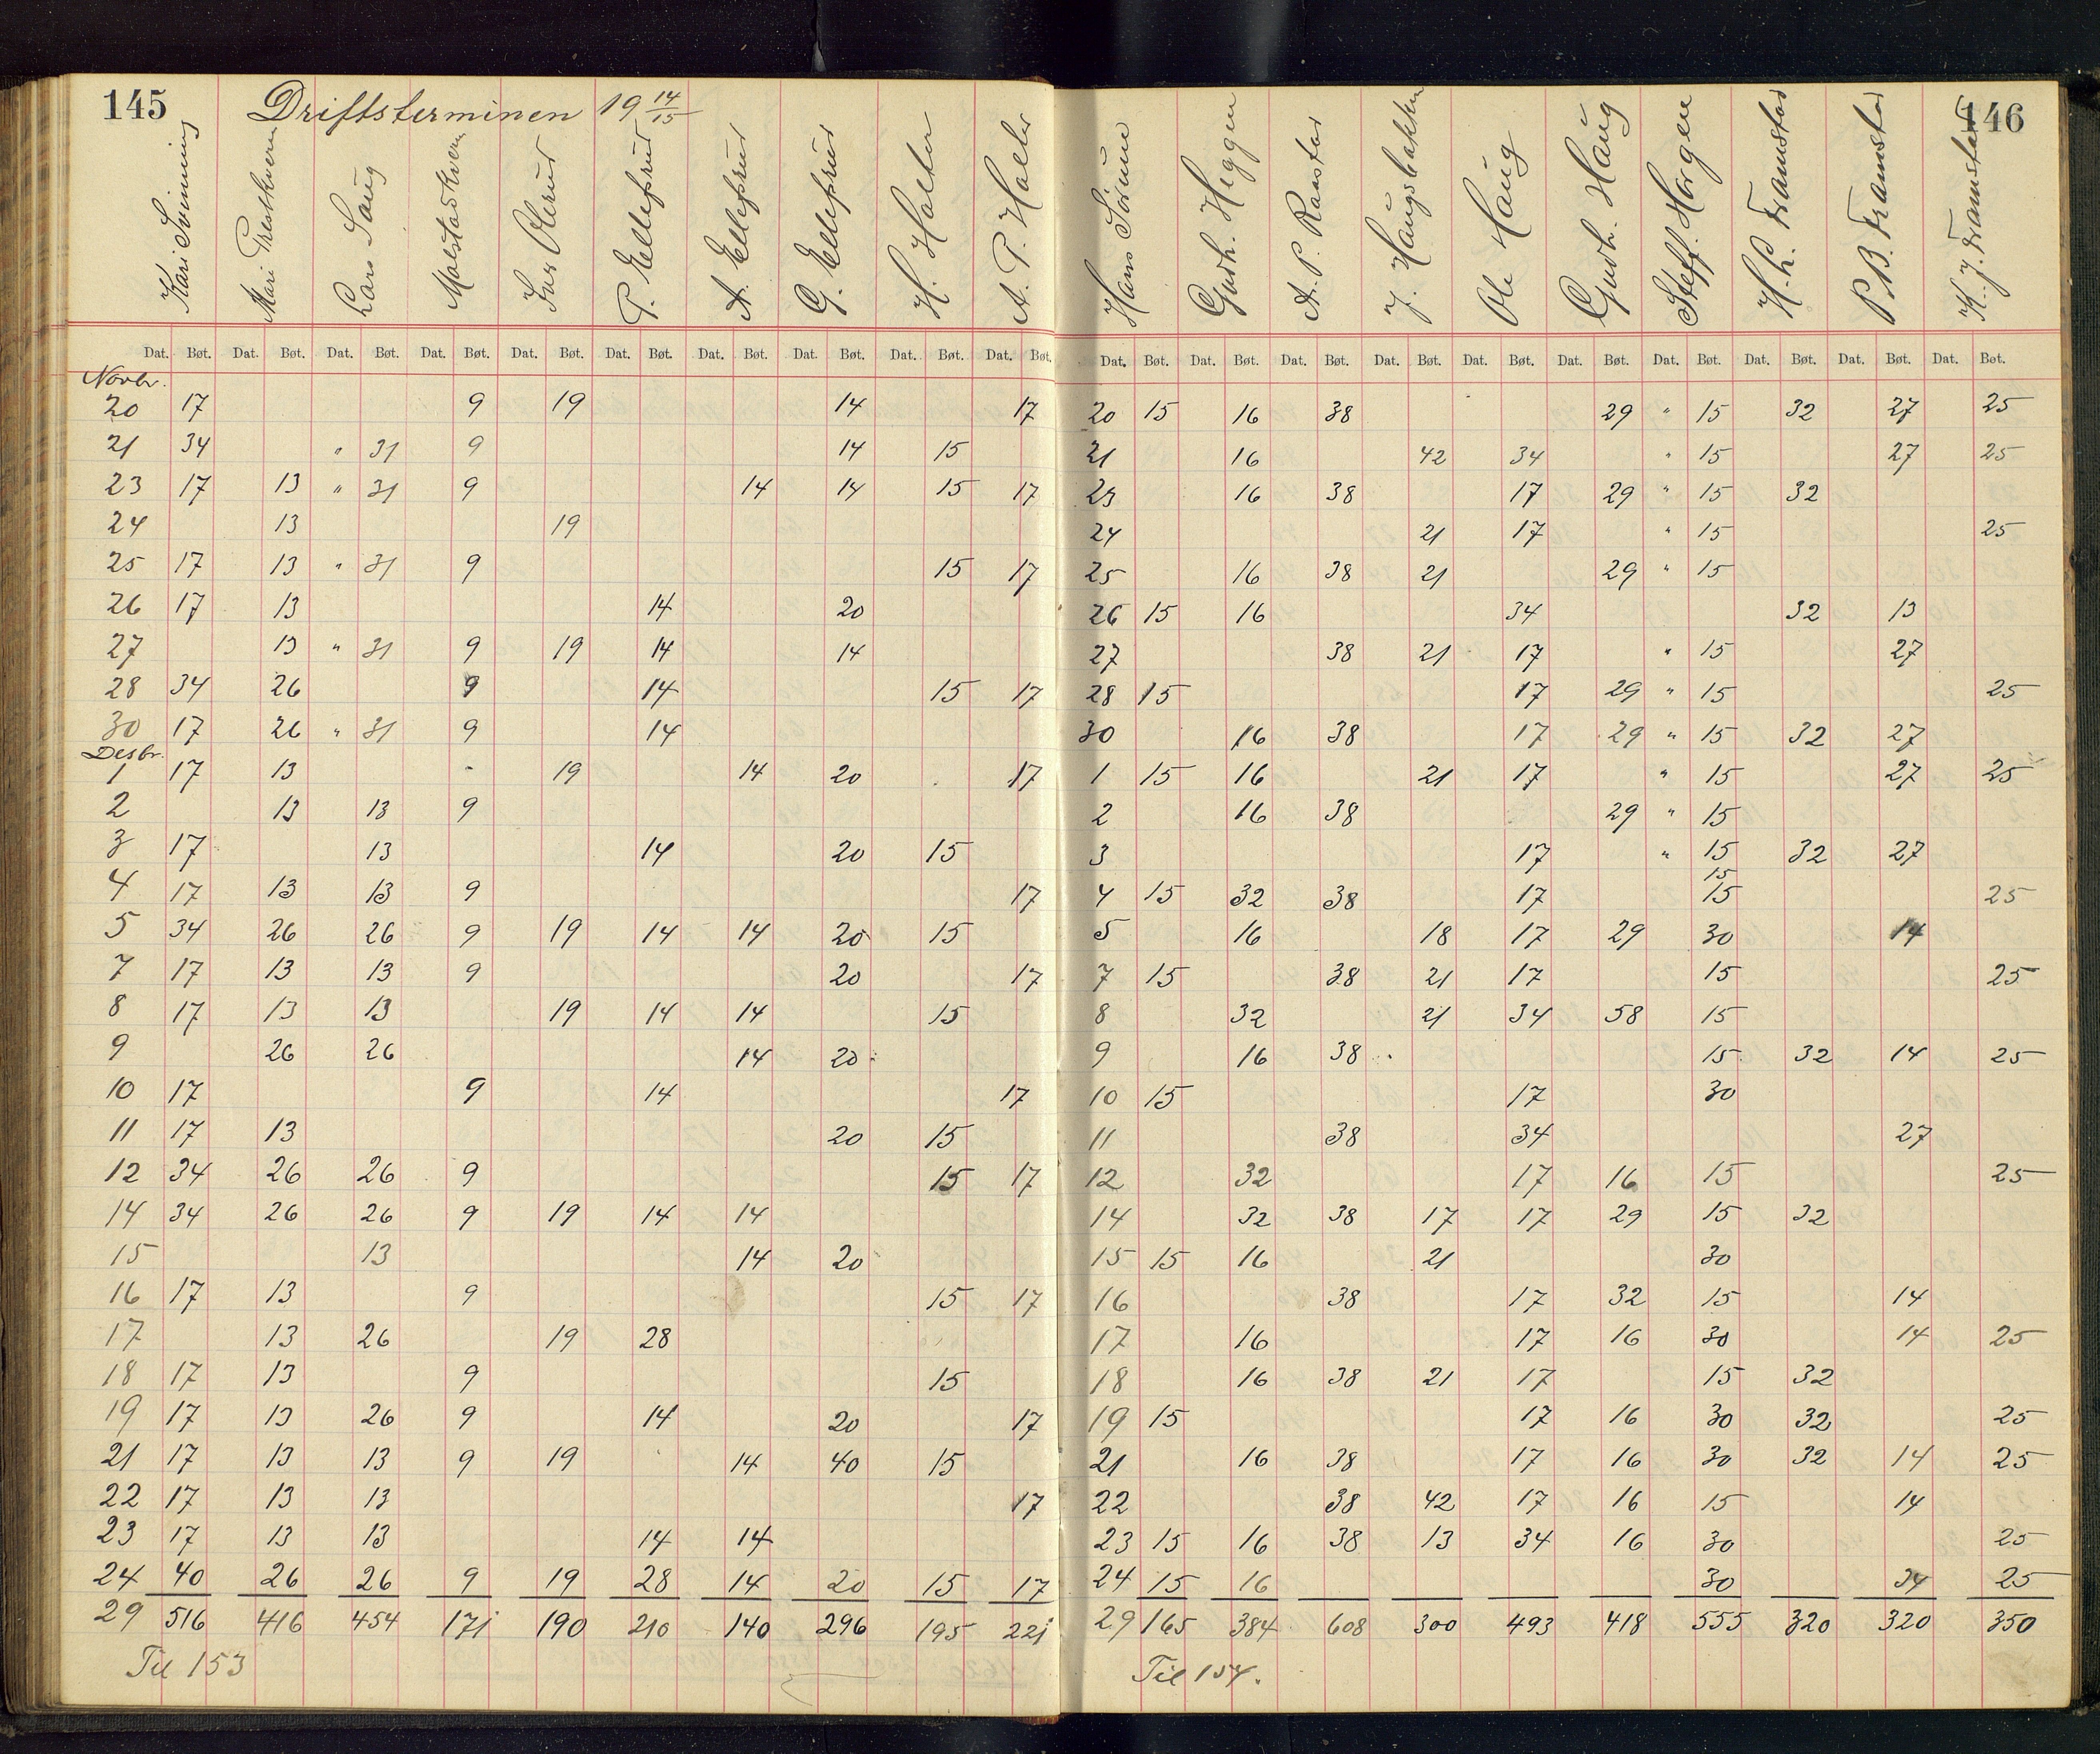 145 Driftsterminen 19 14/15
Kari Svinning Mari Prestkvern Lars Haug Malstadkvern Iver Olerud P. Ellefsrud A. Ellefsrud G. Ellefsrud H. Holter A. P. Holter
Dat. Bøt. Dat. Bøt. Dat. Bøt. Dat. Bøt. Dat. Bøt. Dat. Bøt. Dat. Bøt. Dat. Bøt. Dat. Bøt. Dat. Bøt.
Novbr.
20 17 9 19 14 17
21 34 " 31 9 14 15
23 17 13 " 31 9 14 14 15 17
24 13 19
25 17 13 " 31 9 15 17
26 17 13 14 20
27 13 " 31 9 19 14 14
28 34 26 9 14 15 17
30 17 26 " 31 9 14
Desbr.
1 17 13 19 14 20 17
2 13 13 9
3 17 13 14 20 15
4 17 13 13 9 17
5 34 26 26 9 19 14 14 20 15
7 17 13 13 9 20 17
8 17 13 13 19 14 14 15
9 26 26 14 20
10 17 9 14 17
11 17 13 20 15
12 34 26 26 9 15 17
14 34 26 26 9 19 14 14
15 13 14 20
16 17 13 9 15 17
17 13 26 19 28
18 17 13 9 15
19 17 13 26 9 14 20 17
21 17 13 13 9 19 14 40 15
22 17 13 13 17
23 17 13 13 14 14
24 40 26 26 9 19 28 14 20 15 17
29 516 416 454 171 190 210 140 296 195 221
Til 153
146
Hans Sørum Gudh. Heggen A. P. Raastad J. Haugsbakken Ole Haug Gudh. Haug Steff. Horgen H. L. Framstad P. B. Framstad K. J. Framstad
Dat. Bøt. Dat. Bøt. Dat. Bøt. Dat. Bøt. Dat. Bøt. Dat. Bøt. Dat. Bøt. Dat. Bøt. Dat. Bøt. Dat. Bøt.
20 15 16 38 29 " 15 32 27 25
21 16 42 34 " 15 27 25
23 16 38 17 29 " 15 32
24 21 17 " 15 25
25 16 38 21 29 " 15
26 15 16 34 32 13
27 38 21 17 " 15 27
28 15 17 29 " 15 25
30 16 38 17 29 " 15 32 27
1 15 16 21 17 " 15 27 25
2 16 38 29 " 15
3 17 " 15 32 27
15
4 15 32 38 17 15 25
5 16 18 17 29 30 14
7 15 38 21 17 15 25
8 32 21 34 58 15
9 16 38 15 32 14 25
10 15 17 30
11 38 34 27
12 32 17 16 15 25
14 32 38 17 17 29 15 32
15 15 16 21 30
16 38 17 32 15 14
17 16 17 16 30 14 25
18 16 38 21 17 15 32
19 15 17 16 30 32 25
21 16 38 17 16 30 32 14 25
22 38 42 17 16 15 14
23 15 16 38 13 34 16 30 25
24 15 16 30 34 25
29 165 384 608 300 493 418 555 320 320 350
Til 154.